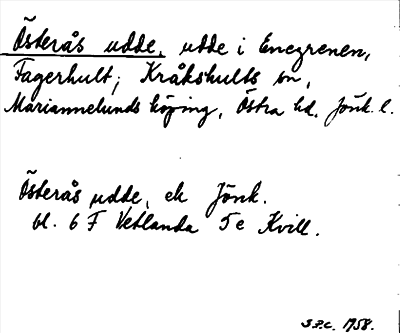 Österås udde, udde i Enegrenen,
Fagerhult; Kråkshults sn,
Mariannelunds köping, Östra hd. Jönk. l.
Österås udde, ek Jönk.
bl. 6 F Vetlanda 5 e Kvill.
S.P.C. 1958.